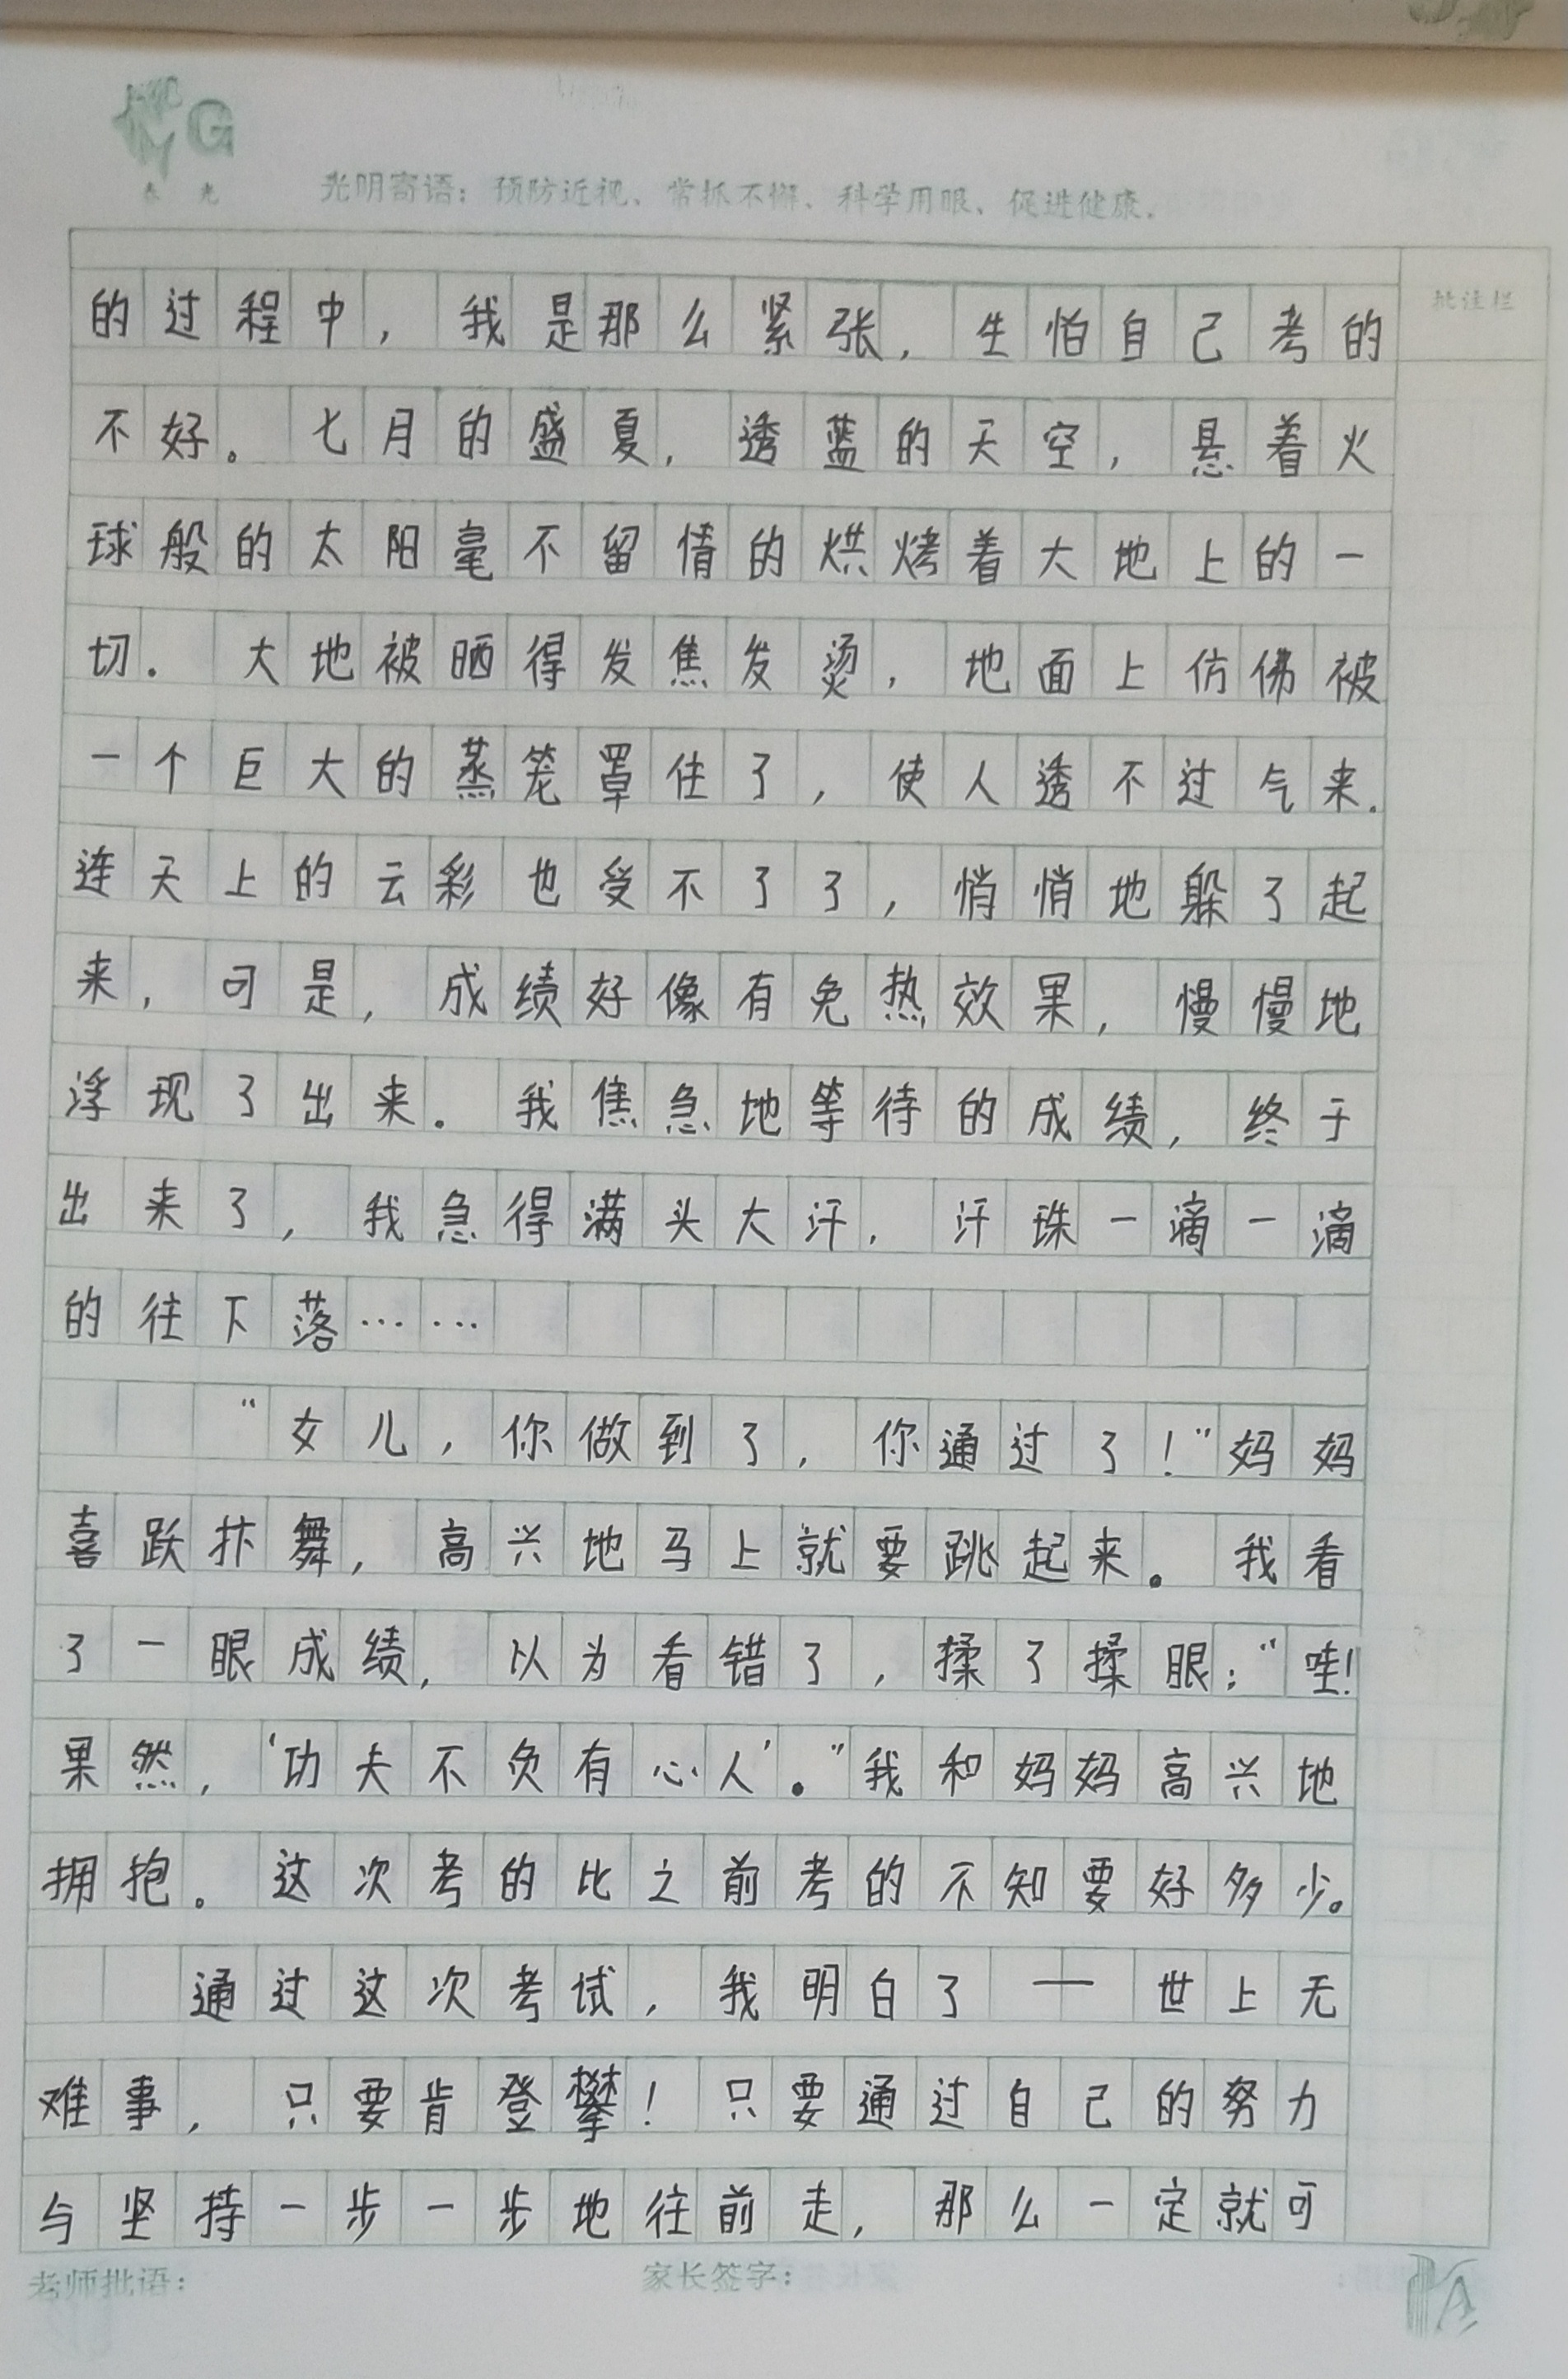 光明寄语：预防近视、常抓不懈、科学用眼、促进健康.
批注栏
的过程中，我是那么紧张，生怕自己考的
不好。七月的盛夏，透蓝的天空，悬着火
球般的太阳毫不留情的烘烤着大地上的一
切.大地被晒得发焦发烫，地面上仿佛被
一个巨大的蒸笼罩住了，使人透不过气来.
连天上的云彩也受不了了，悄悄地躲了起
来，可是，成绩好像有免热效果，慢慢地
浮现了出来。我焦急地等待的成绩，终于
出来了，我急得满头大汗，汗珠一滴一滴
的往下落……
“女儿，你做到了，你通过了！”妈妈
喜跃抃舞，高兴地马上就要跳起来。我看
了一眼成绩，以为看错了，揉了揉眼：“哇！
果然，‘功夫不负有心人’。”我和妈妈高兴地
拥抱。这次考的比之前考的不知要好多少。
通过这次考试，我明白了——世上无
难事，只要肯登攀！只要通过自己的努力
与坚持一步一步地往前走，那么一定就可
老师批语：
家长签字：